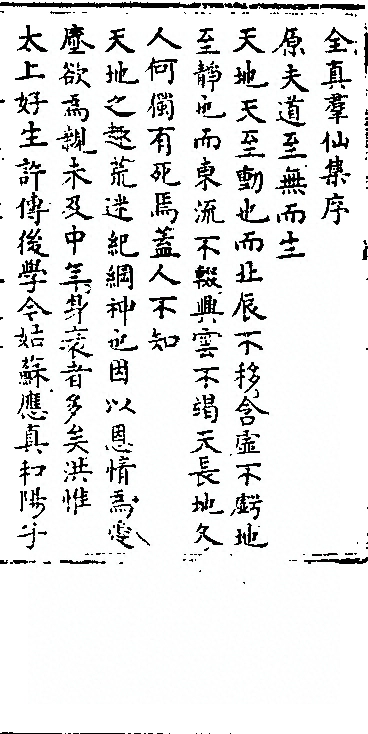 全真羣仙集序
原夫道至無而生
天地天至動也而北辰不移含虛不虧地
至靜也而東流不輟興雲不竭天長地久
人何獨有死焉蓋人不知
天地之趣荒迷紀綱神也因以恩情為愛
塵欲為親未及中年卦衰者多矣洪惟
太上好生許傳後學今姑蘇應真和陽子